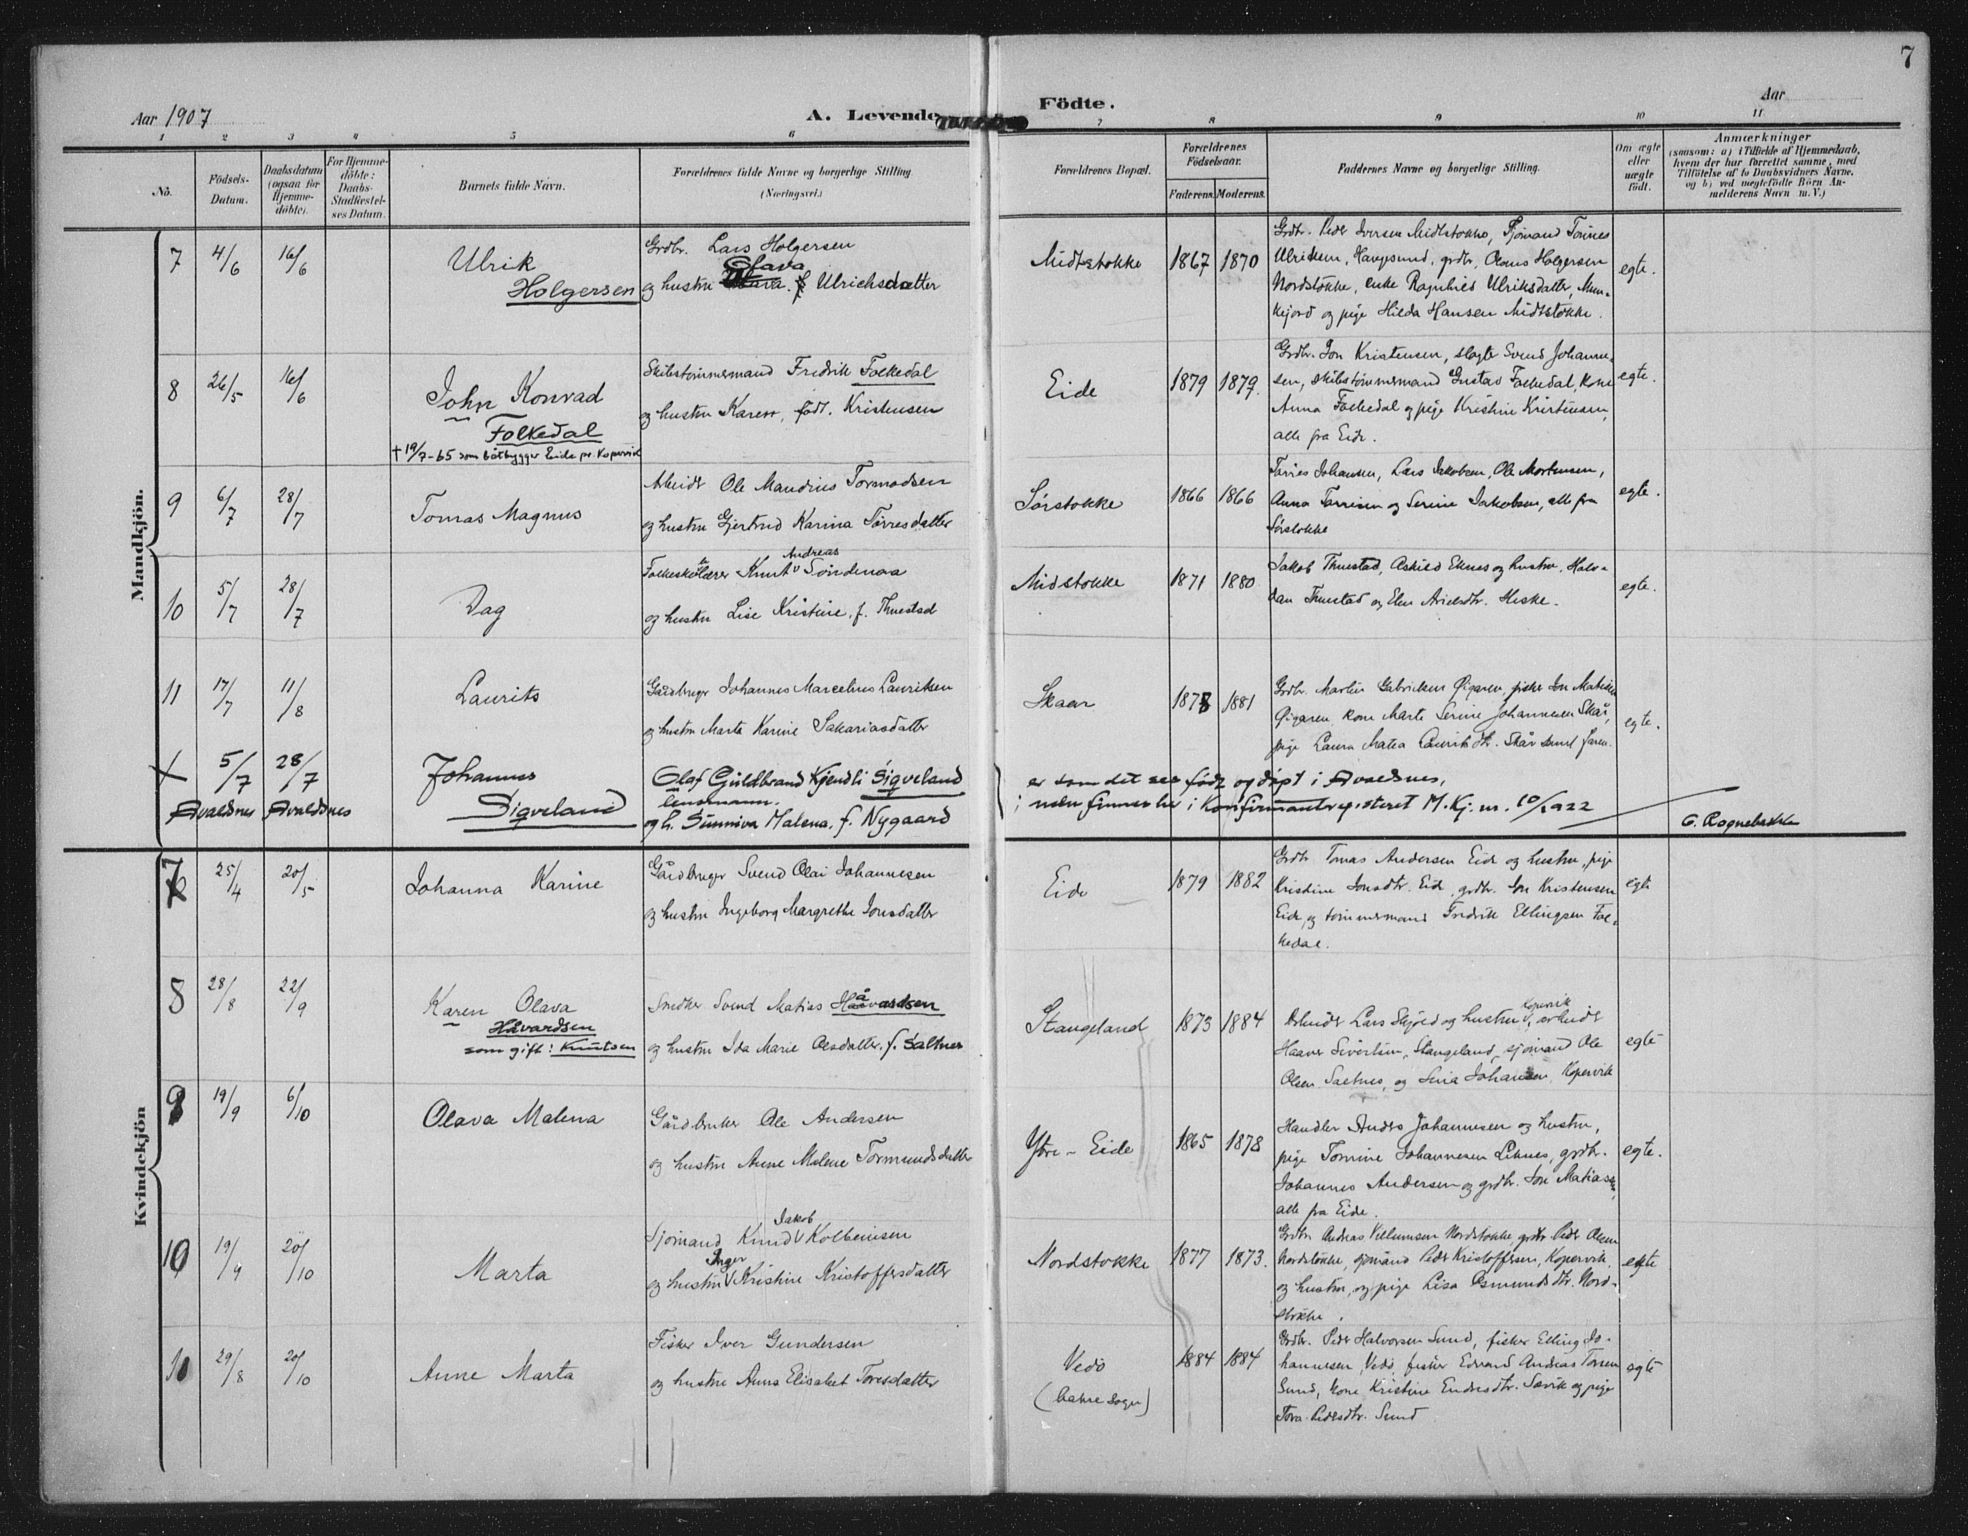 7
Aar 1907
A. Levende
Födte.
Aar
1 2 3 4 5 6 7 8 9 10 11
No.
Födsels-Datum.
Daabsdatum (ogsaa for Hjemme-döbte).
For Hjemme-döbte: Daabs-Stadfæstel-ses Datum.
Barnets fulde Navn.
Forældrenes fulde Navne og borgerlige Stilling
(Næringsvei.)
Forældrenes Bopæl.
Forældrenes Födselsaar.
Faderens. Moderens.
Faddernes Navne og borgerlige Stilling.
Om ægte eller uægte födt.
Anmærkninger
(saasom: a) i Tilfælde af Hjemmedaab, hvem der har forrettet samme, med Tilföielse af to Daabsvidners Navne, og b) ved uegtefödte Börn An-melderens Navn m. V.)
Mandkjön.
7 4/6 16/6 Ulrik Holgersen
Grdbr. Lars Holgersen
og hustru Olava f. Ulrichsdatter
Midtstokke 1867 1870
Grdbr. Peder Iversen Midtstokke, Sjømand Tønnes
Ulriksen, Haugesund, grdbr. Holgersen
Nordstokke, enke Ragnhild Ulriksdatter, Mun-
kejord og pige Hilda Hansen Midtstokke.
egte.
8 26/5 16/6 John Konrad
Folkedal
† 19/7-65 som båtbygger Eide pr. Kopervik
Skibstømmermand Fredrik Folkedal
og hustru Karen, født Kristensen
Eide 1879 1879.
Grdbr. Jon Kristensen, slagter Svend Johanne-
sen, skibstømmermand Gustav Folkedal, kone
Anna Folkedal og pige Kristine Kristensen,
alle fra Eide.
egte.
9 6/7 28/7 Tomas Magnus
Arbeider Ole Mandius Tormodsen
og hustru Gjertrud Karina Tørresdatter
Sørstokke 1866 1866
Tørres Johansen, Lars Jakobsen, Ole Mortensen,
Anna Tørresen og Serine Jakobsen, alle fra
Sørstokke
egte.
10 5/7 28/7 Dag
Folkeskolelærer Knut Andreas Søndenaa
og hustru Lise Kristine, f. Thuestad
Midstokke 1871 1880
Jakob Thuestad, Askild Eknes og hustru, Halv-
dan Thuestad og Elen Arildsdtr. Heske.
egte.
11 17/7 11/8 Laurits
Gårdbruger Johannes Marcelius Lauritsen
og hustru Marta Karine Sakariasdatter
Skaar 1878 1881
Grdbr. Martin Gabrielsen Øigaren, fisker Jon Matisen
Øigaren, kone Marte Serine Johannesen Skår,
pige Laura Matea Lauritsdtr. Skår samt faren.
egte.
X 5/7 28/7 Johannes
Sigveland
Avaldsnes Avaldsnes
Olaf Guldbrand Kjendli Sigveland
lensmann.
og h. Sunniva Malena, f. Nygaard
er som det sees født og døpt i Avaldsnes,
men finnes her i konfirmantregisteret M.Kj. nr. 10/1922
G. Rognebakke
Kvindekjön
7 25/4 20/5 Johanna Karine
Gårdbruger Svend Olai Johannesen
og hustru Ingeborg Margrethe Jonsdatter
Eide 1879 1882
Grdbr. Tomas Andersen Eide og hustru, pige
Kristine Jonsdtr. Eide, grdbr. Jon Kristensen
Eide, og tømmermand Fredrik Ellingsen Fol-
kedal.
egte
8 28/8 22/9 Karen Olava
Håvardsen
som gift: Knutsen
Snedker Svend Matias Håvardsen
og hustru Ida Marie Olsdatter. f. Saltnes
Stangeland 1873 1884
Arbeider Lars Skjold og hustru, Kopervik arbeider
Haaver Sivertsen, Stangeland, sjømand Ole
Olsen Saltnes, og Sina Johansen, Kopervik
egte
9 19/9 6/10 Olava Malena
Gårdbruker Ole Andersen
og hustru Anne Malene Tormundsdatter
Ytre-Eide 1865 1878
Handler Anders Johannesen og hustru,
pige Tomine Johannesen Liknes, grdbr.
Johannes Andersen og grdbr. Jon Matiassen,
alle fra Eide.
egte.
10 19/9 20/10 Marta
Sjømand Knud Jakob Kolbeinsen
og hustru Inger Kristine Kristoffersdatter
Nordstokke 1877 1873.
Grdbr. Andreas Villumsen Nordstokke, grdbr Peder Olsen
Nordstokke, sjømand Peder Kristoffersen, Kopervik,
og hustru, og pige Lisa Osmundsdtr. Nord-
stokke.
egte
29/8 20/10 Anne Marta
Fisker Iver Gundersen
og hustru Anna Elisabet Toresdatter
Vedø
1884 1884
Grdbr. Peder Halvorsen Sund, fisker Elling Jo-
hannesen, Vedø, fisker Edvard Andreas Toresen
Sund, kone Kristine Endresdtr. Sævik og pige
Tora Pedersdtr. Sund
egte